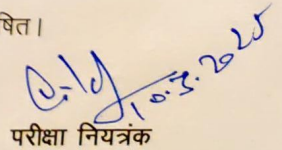 षित।
10.3.2025
परीक्षा नियत्रंक